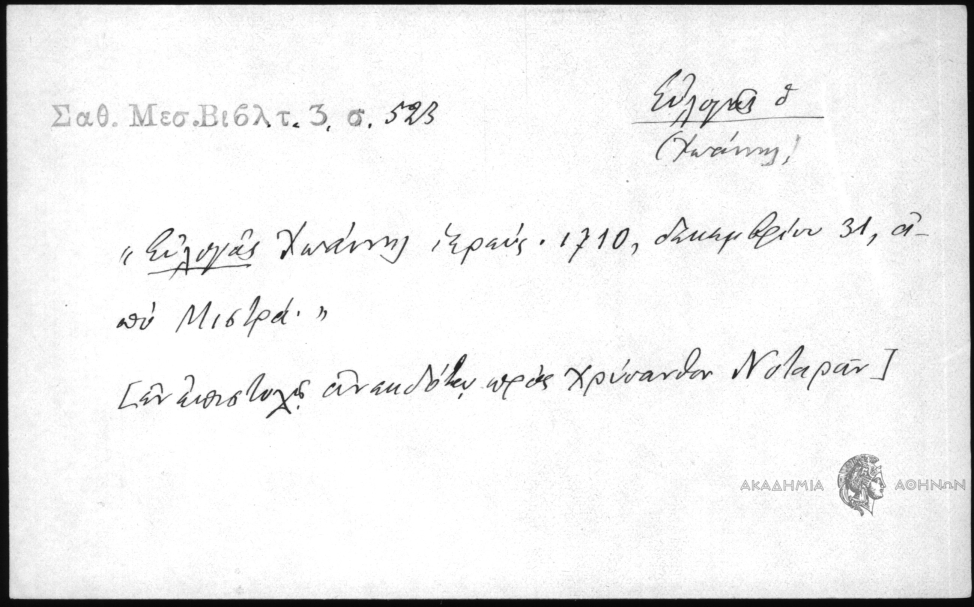 Σαθ. Μεσ. Βιβλ τ. 3, σ. 523
Εὐλογᾶς ὁ
(Ἰωάννης)
"Εὐλογᾶς Ἰωάννης ἱερεύς. 1710, δεκεμβρίου 31, ἀ-
πὸ Μιστρᾶ."
[ἐν ἐπιστολῇ ἀνεκδότῳ πρὸς Χρύσανθον Νοταρᾶν]
ΑΚΑΔΗΜΙΑ ΑΘΗΝΩΝ